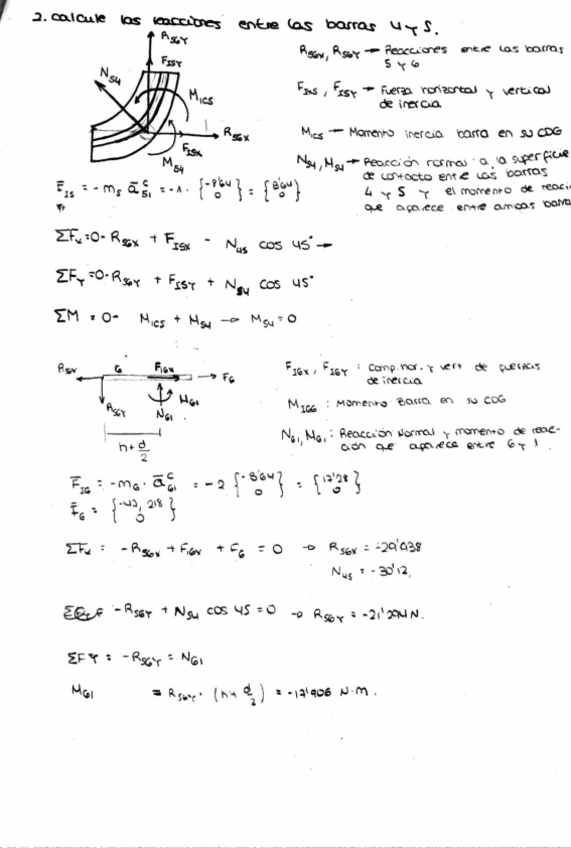 2. calcule las reacciones entre las barras 4 y 5.
R56Y
FI5Y
N54
MIC5
R56X
FI5X
M54
R56X, R56Y → Reacciones entre las barras
5 y 6
FIX5, FI5Y → Fuerza horizontal y vertical
de inercia
MIC5 → Momento inercia barra en su CDG
N54, M54 → Reacción normal a la superficie
de contacto entre las barras
4 y 5 y el momento de reacci
que aparece entre ambas barra
F̄I5 = -m5 ā51^C = -1 · {-8'64 0} = {8'64 0}
ΣFx=0- R56X + FI5X - N45 cos 45° →
ΣFY=0· R56Y + FI5Y + N54 cos 45°
ΣM = 0- MIC5 + M54 → M54=0
R56X G FI6X F6
R56Y MG1
N61
h+d/2
FI6X, FI6Y : comp.hor. y vert de fuerzas
de inercia
MIG6 : Momento Barra en su CDG
N61, M61 : Reacción Normal y momento de reac-
ción que aparece entre 6 y 1.
F̄I6 = -m6 · ā61^C = -2 {-8'64 0} = {17'28 0}
F̄6 = {-47, 218 0}
ΣFx = -R56X + FI6X + F6 = 0 → R56X = -29'938
N45 = -30'12,
-R56Y + N54 cos 45 = 0 → R56Y = -21'294 N.
ΣFY = -R56Y = N61
M61 = R56Y · (h+ d/2) = -17'906 N·m.